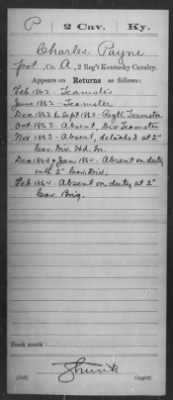 P 2 Cav. Ky.
Charles Payne
Co. A, 2 Reg't Kentucky Cavalry.
Appears on
Returns as follows:
Feb 1862 - Teamster
June 1862 - Teamster
Dec 1862 to Sept 1863 - Regtl Teamster
Oct 1863 - Absent, Div Teamster
Nov 1863 - Absent, detached at 2"
Cav. Div. Hd. Qr.
Dec 1863 & Jan 1864 - Absent on duty
with 2" Cav. Div.
Feb 1864 - Absent on duty at 2"
Cav. Brig.
Book mark:
Copyist.